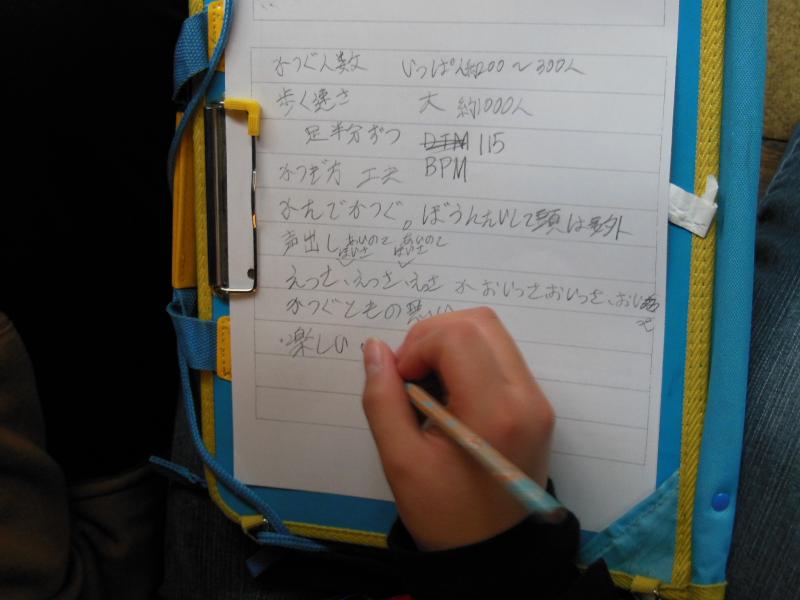 かつぐ人数 いっぱん約200〜300人
歩く速さ 大 約1000人
足半分ずつ DTM 115
かつぎ方 工夫 BPM
かたでかつぐ。ぼうんたいして頭は外
声出し あいのて はいさ あいのて はいさ
えっさ、えっさ、えっさ か おいっさ、おいっさ、おい
かつぐともの思い
・楽しい・